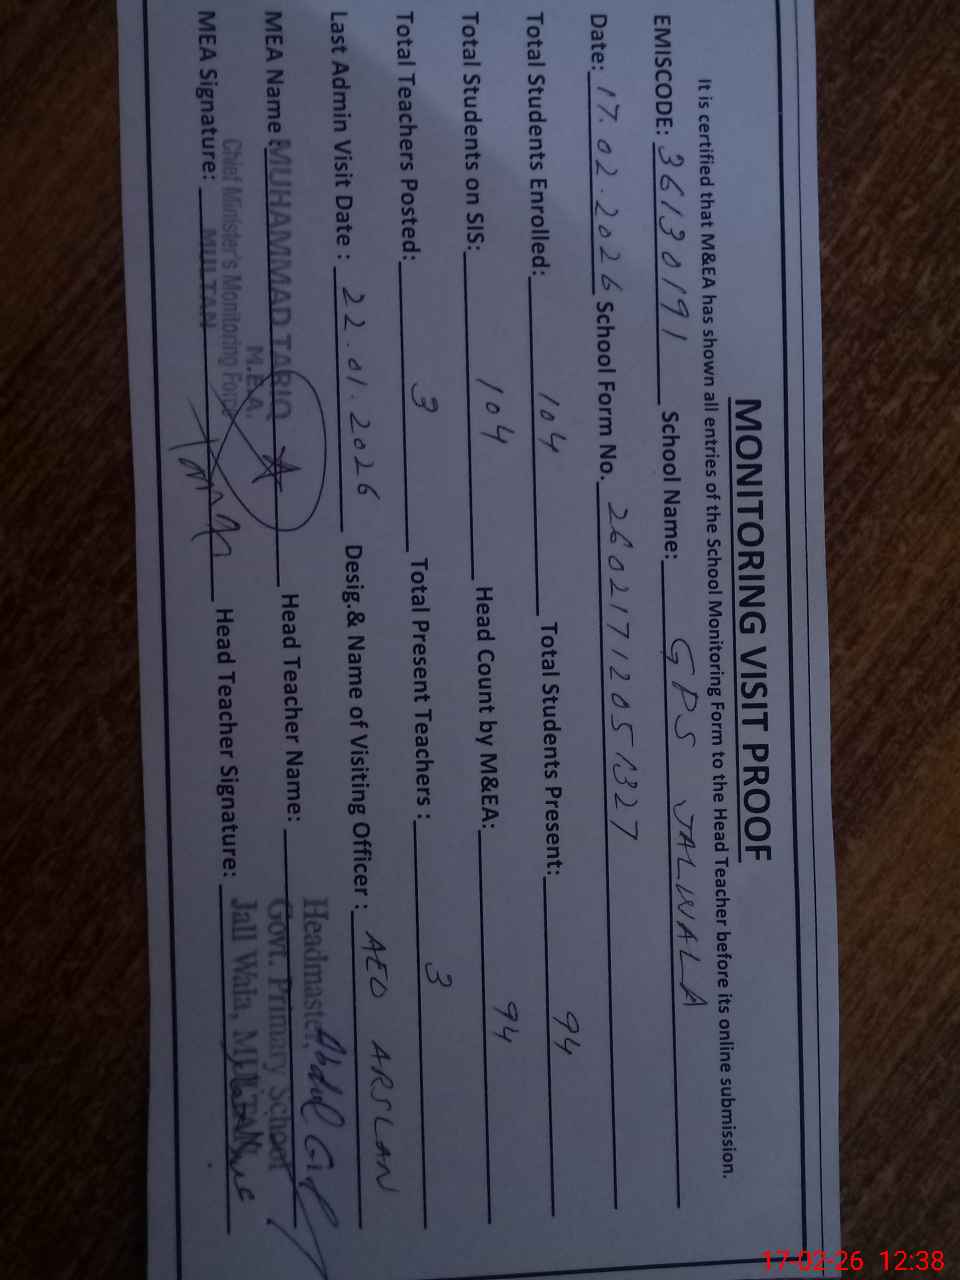 MONITORING VISIT PROOF
It is certified that M&EA has shown all entries of the School Monitoring Form to the Head Teacher before its online submission.
EMISCODE: 36130191 School Name: GPS JALWALA
Date: 17.02.2026 School Form No. 26021712051327
Total Students Enrolled: 104 Total Students Present: 94
Total Students on SIS: 104 Head Count by M&EA: 94
Total Teachers Posted: 3 Total Present Teachers : 3
Last Admin Visit Date : 22.01.2026 Desig.& Name of Visiting Officer : AEO ARSLAN
MEA Name MUHAMMAD TARIQ Head Teacher Name: Abdul
M.E.A.
Chief Minister's Monitoring Force
MEA Signature: MULTAN Head Teacher Signature:
Headmaster
Govt. Primary School
Jall Wala, MULTAN
17-02-26 12:38